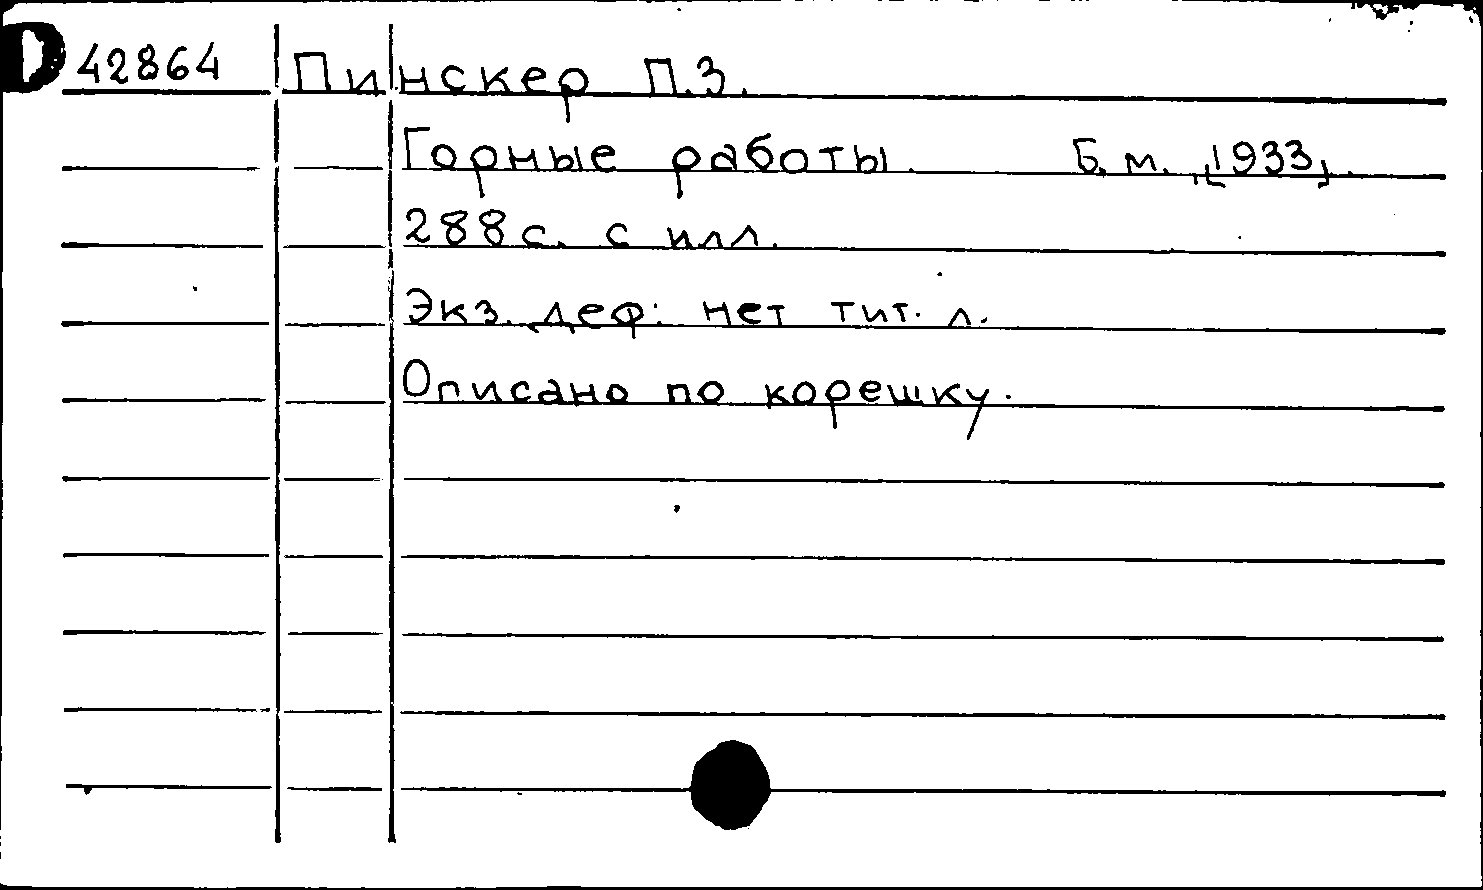 42864 Пинскер П.З.
Горные работы. Б.м., [1933].
288 с. с илл.
Экз. деф: нет тит. л.
Описано по корешку.